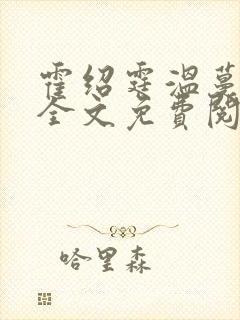 霍绍霆温蔓
全文免费阅
哈里森